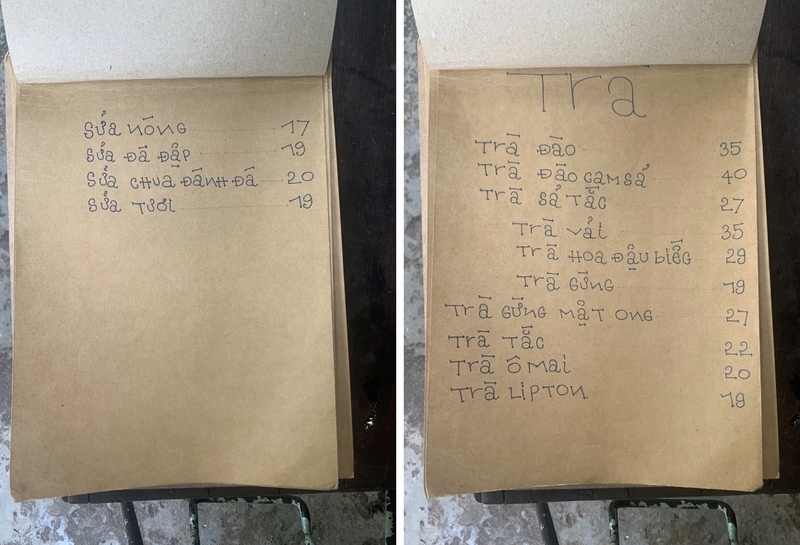 Sữa nóng 17
Sữa đá đập 19
Sữa chua đánh đá 20
Sữa tươi 19
Trà
Trà đào 35
Trà đào cam sả 40
Trà sả tắc 27
Trà vải 35
Trà hoa đậu biếc 29
Trà gừng 19
Trà gừng mật ong 27
Trà tắc 22
Trà ô mai 20
Trà Lipton 19